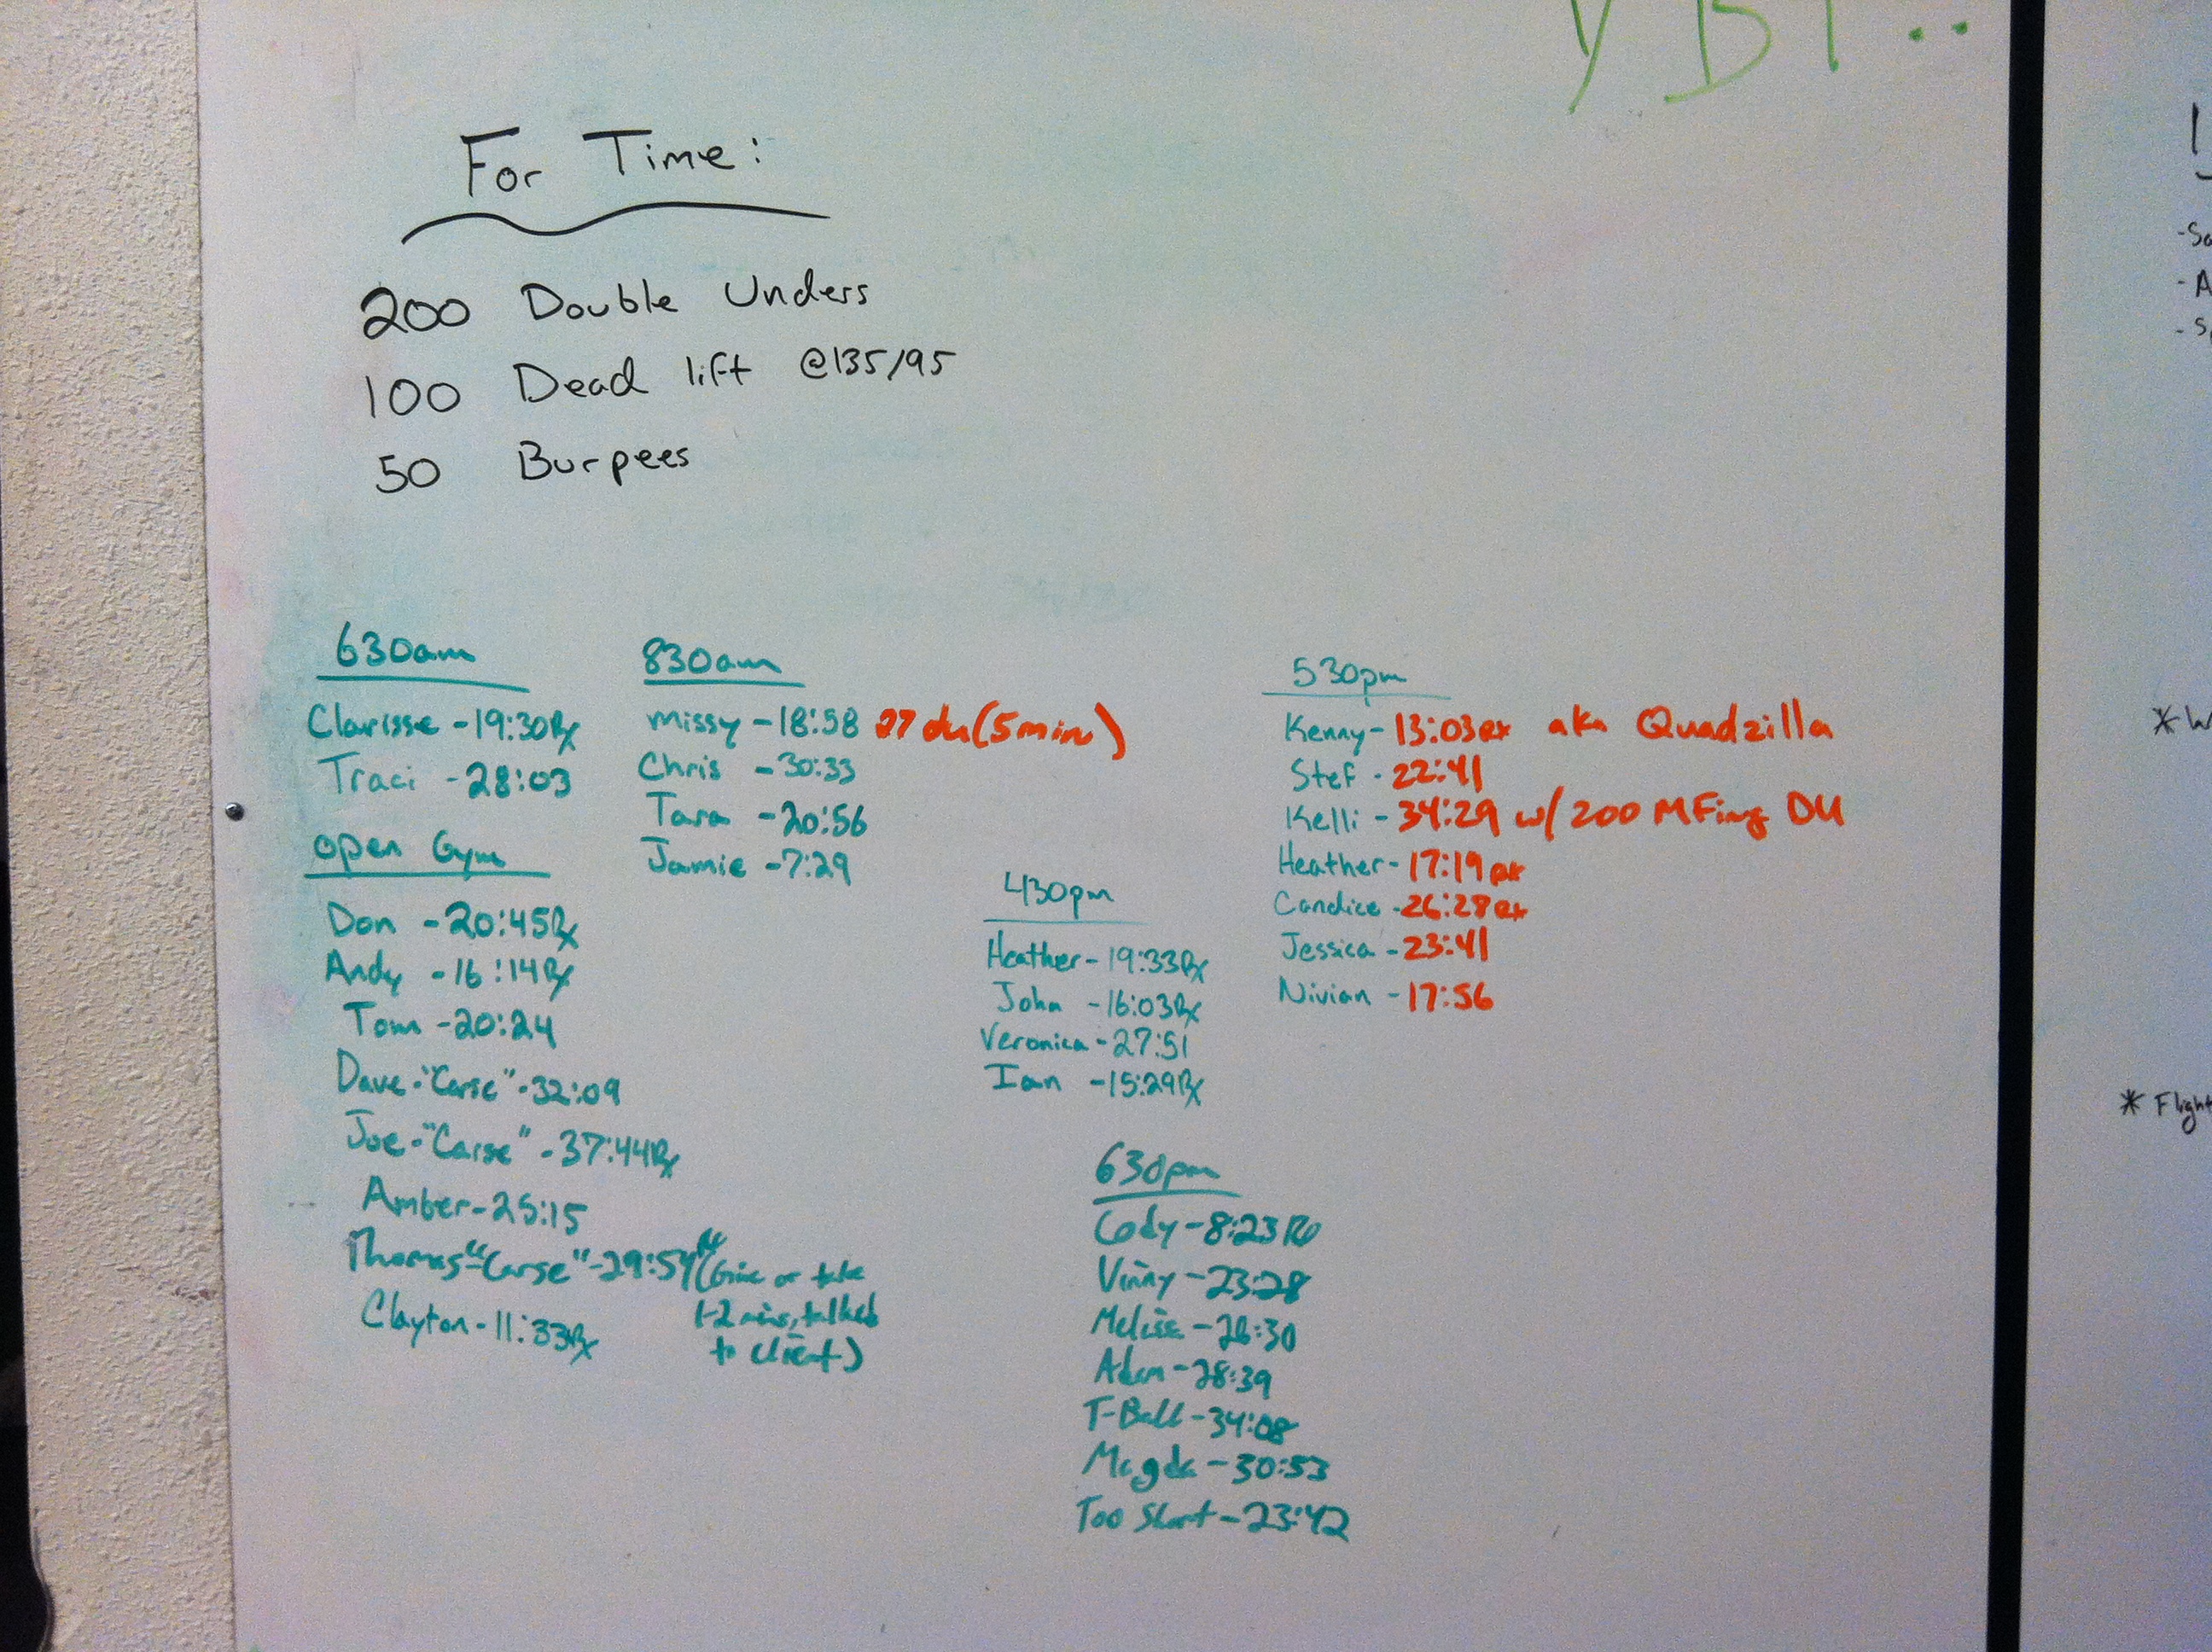 For Time:
200 Double Unders
100 Dead lift @135/95
50 Burpees
630am
Clarisse - 19:30Rx
Traci - 28:03
open Gym
Don - 20:45Rx
Andy - 16:14Rx
Tom - 20:24
Dave - "Carse" - 32:09
Joe - "Carse" - 37:44Rx
Amber - 25:15
Thomas "Carse" - 29:54 (Give or take
1-2 mins, talked
to client)
Clayton - 11:33Rx
830am
Missy - 18:58 27 du (5min)
Chris - 30:33
Tara - 20:56
Jamie - 7:29
430pm
Heather - 19:33Rx
John - 16:03Rx
Veronica - 27:51
Ian - 15:29Rx
530pm
Kenny - 13:03Rx aka Quadzilla
Stef - 22:41
Kelli - 34:29 w/ 200 MFing DU
Heather - 17:19Rx
Candice - 26:28Rx
Jessica - 23:41
Nivian - 17:56
630pm
Cody - 8:23Rx
Vinny - 23:28
Melissa - 26:30
Adam - 28:39
T-Ball - 34:08
Magda - 30:53
Too Short - 23:42
* Flight